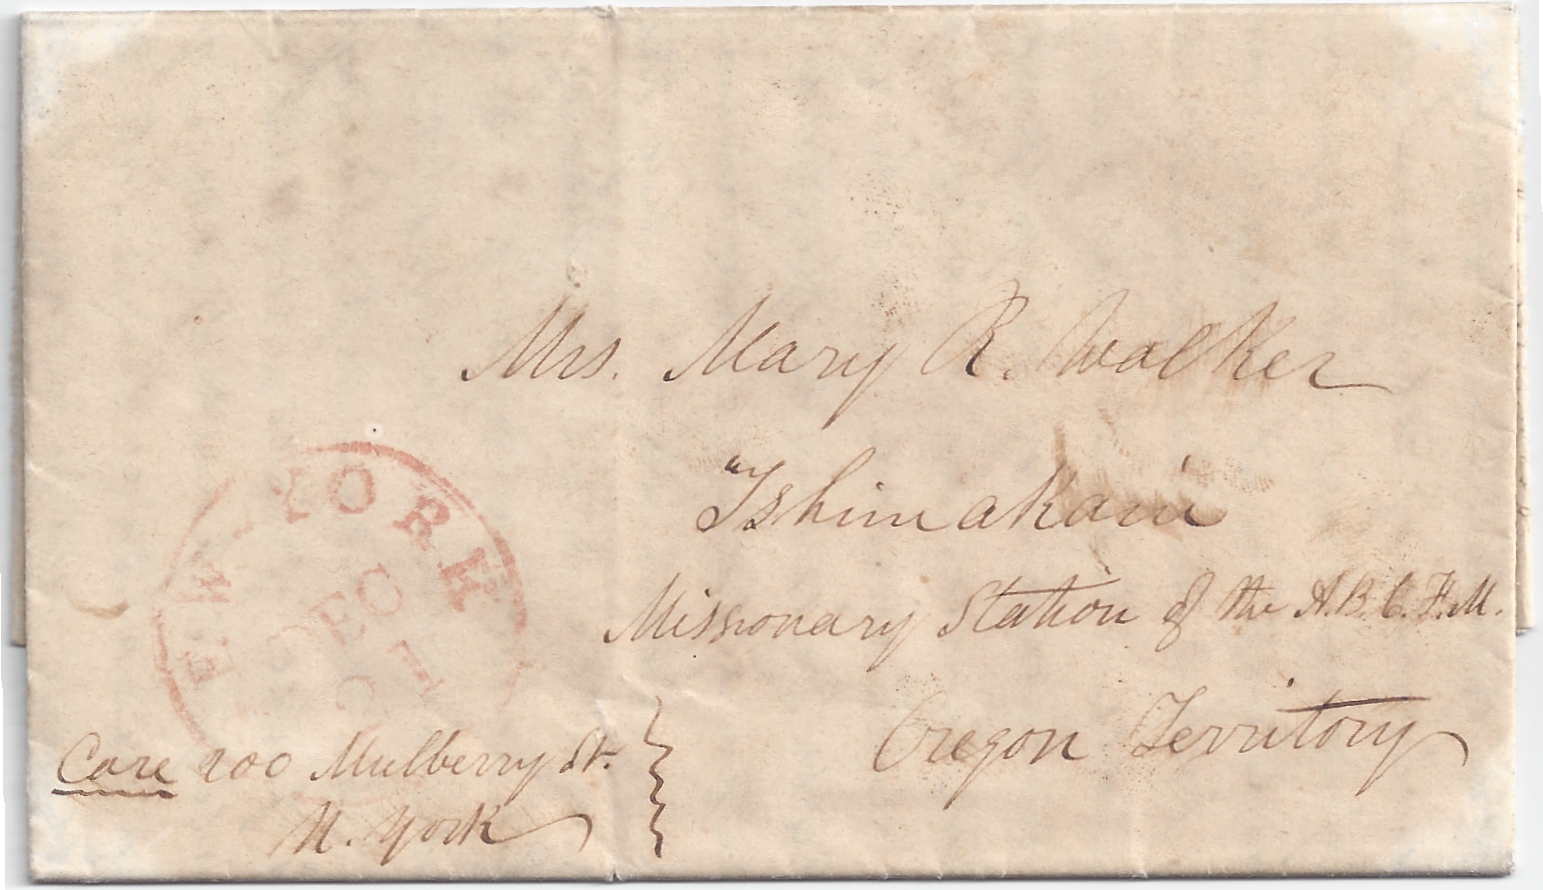 Mrs. Mary R. Walker
"Tshimakain
Missionary Station of the A.B.C.F.M.
Oregon Territory
EW-YORK
DEC
21
Care 200 Mulberry St.
N. York